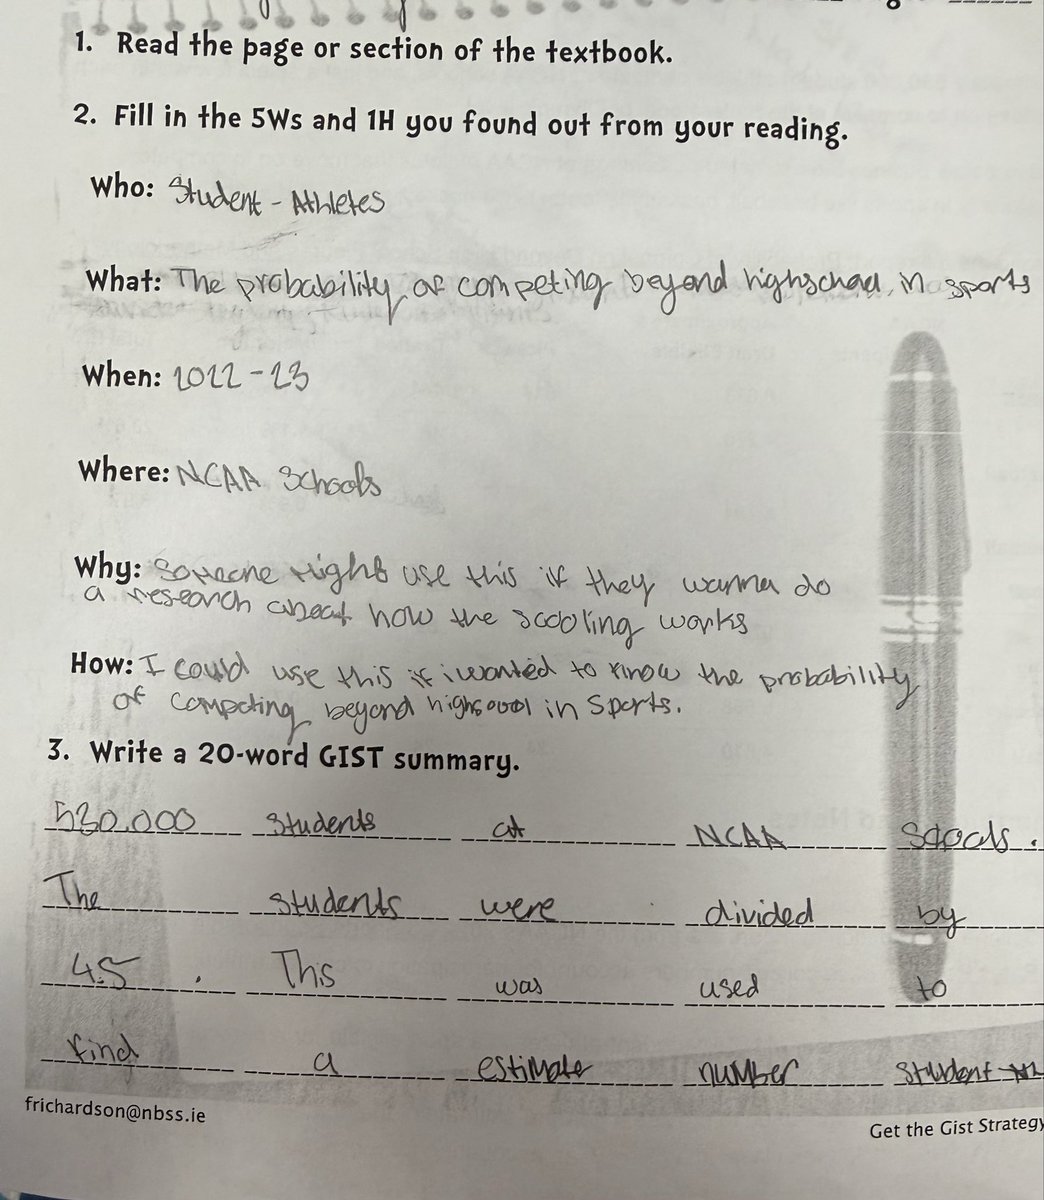 1. Read the page or section of the textbook.
2. Fill in the 5Ws and 1H you found out from your reading.
Who: Student - Athletes
What: The probability of competing beyond highschool in sports
When: 2022-23
Where: NCAA Schools
Why: Someone might use this if they wanna do
a research about how the scooling works
How: I could use this if i wanted to know the probability
of competing beyond highscool in Sports.
3. Write a 20-word GIST summary.
530.000 students at NCAA scools.
The students were divided by
4.5. This was used to
find a estimate number student
frichardson@nbss.ie
Get the Gist Strategy